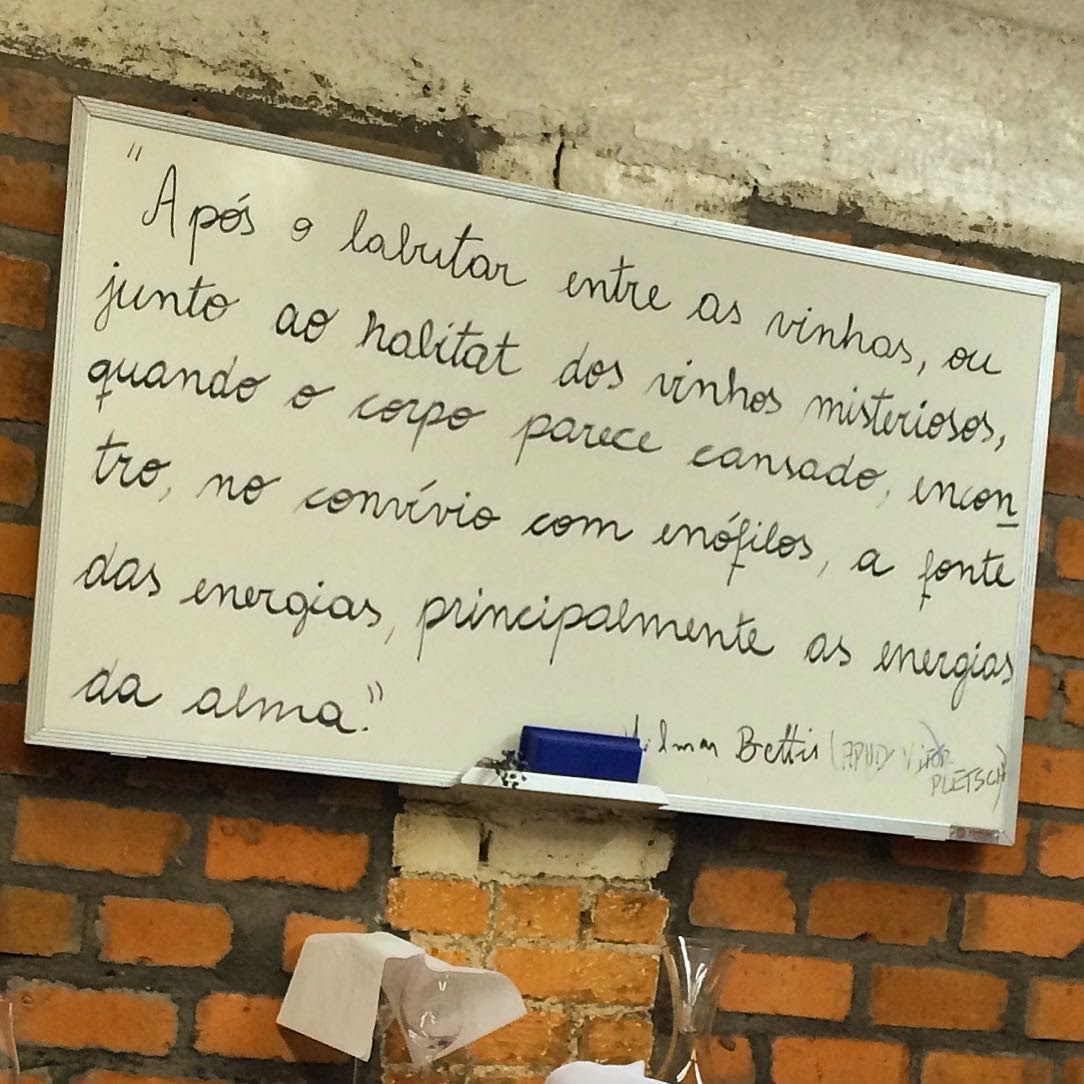 "Após o labutar entre as vinhas, ou
junto ao habitat dos vinhos misteriosos,
quando o corpo parece cansado, encon
tro, no convívio com enófilos, a fonte
das energias, principalmente as energias
da alma."
Bettis (APUD
PLETSCH)